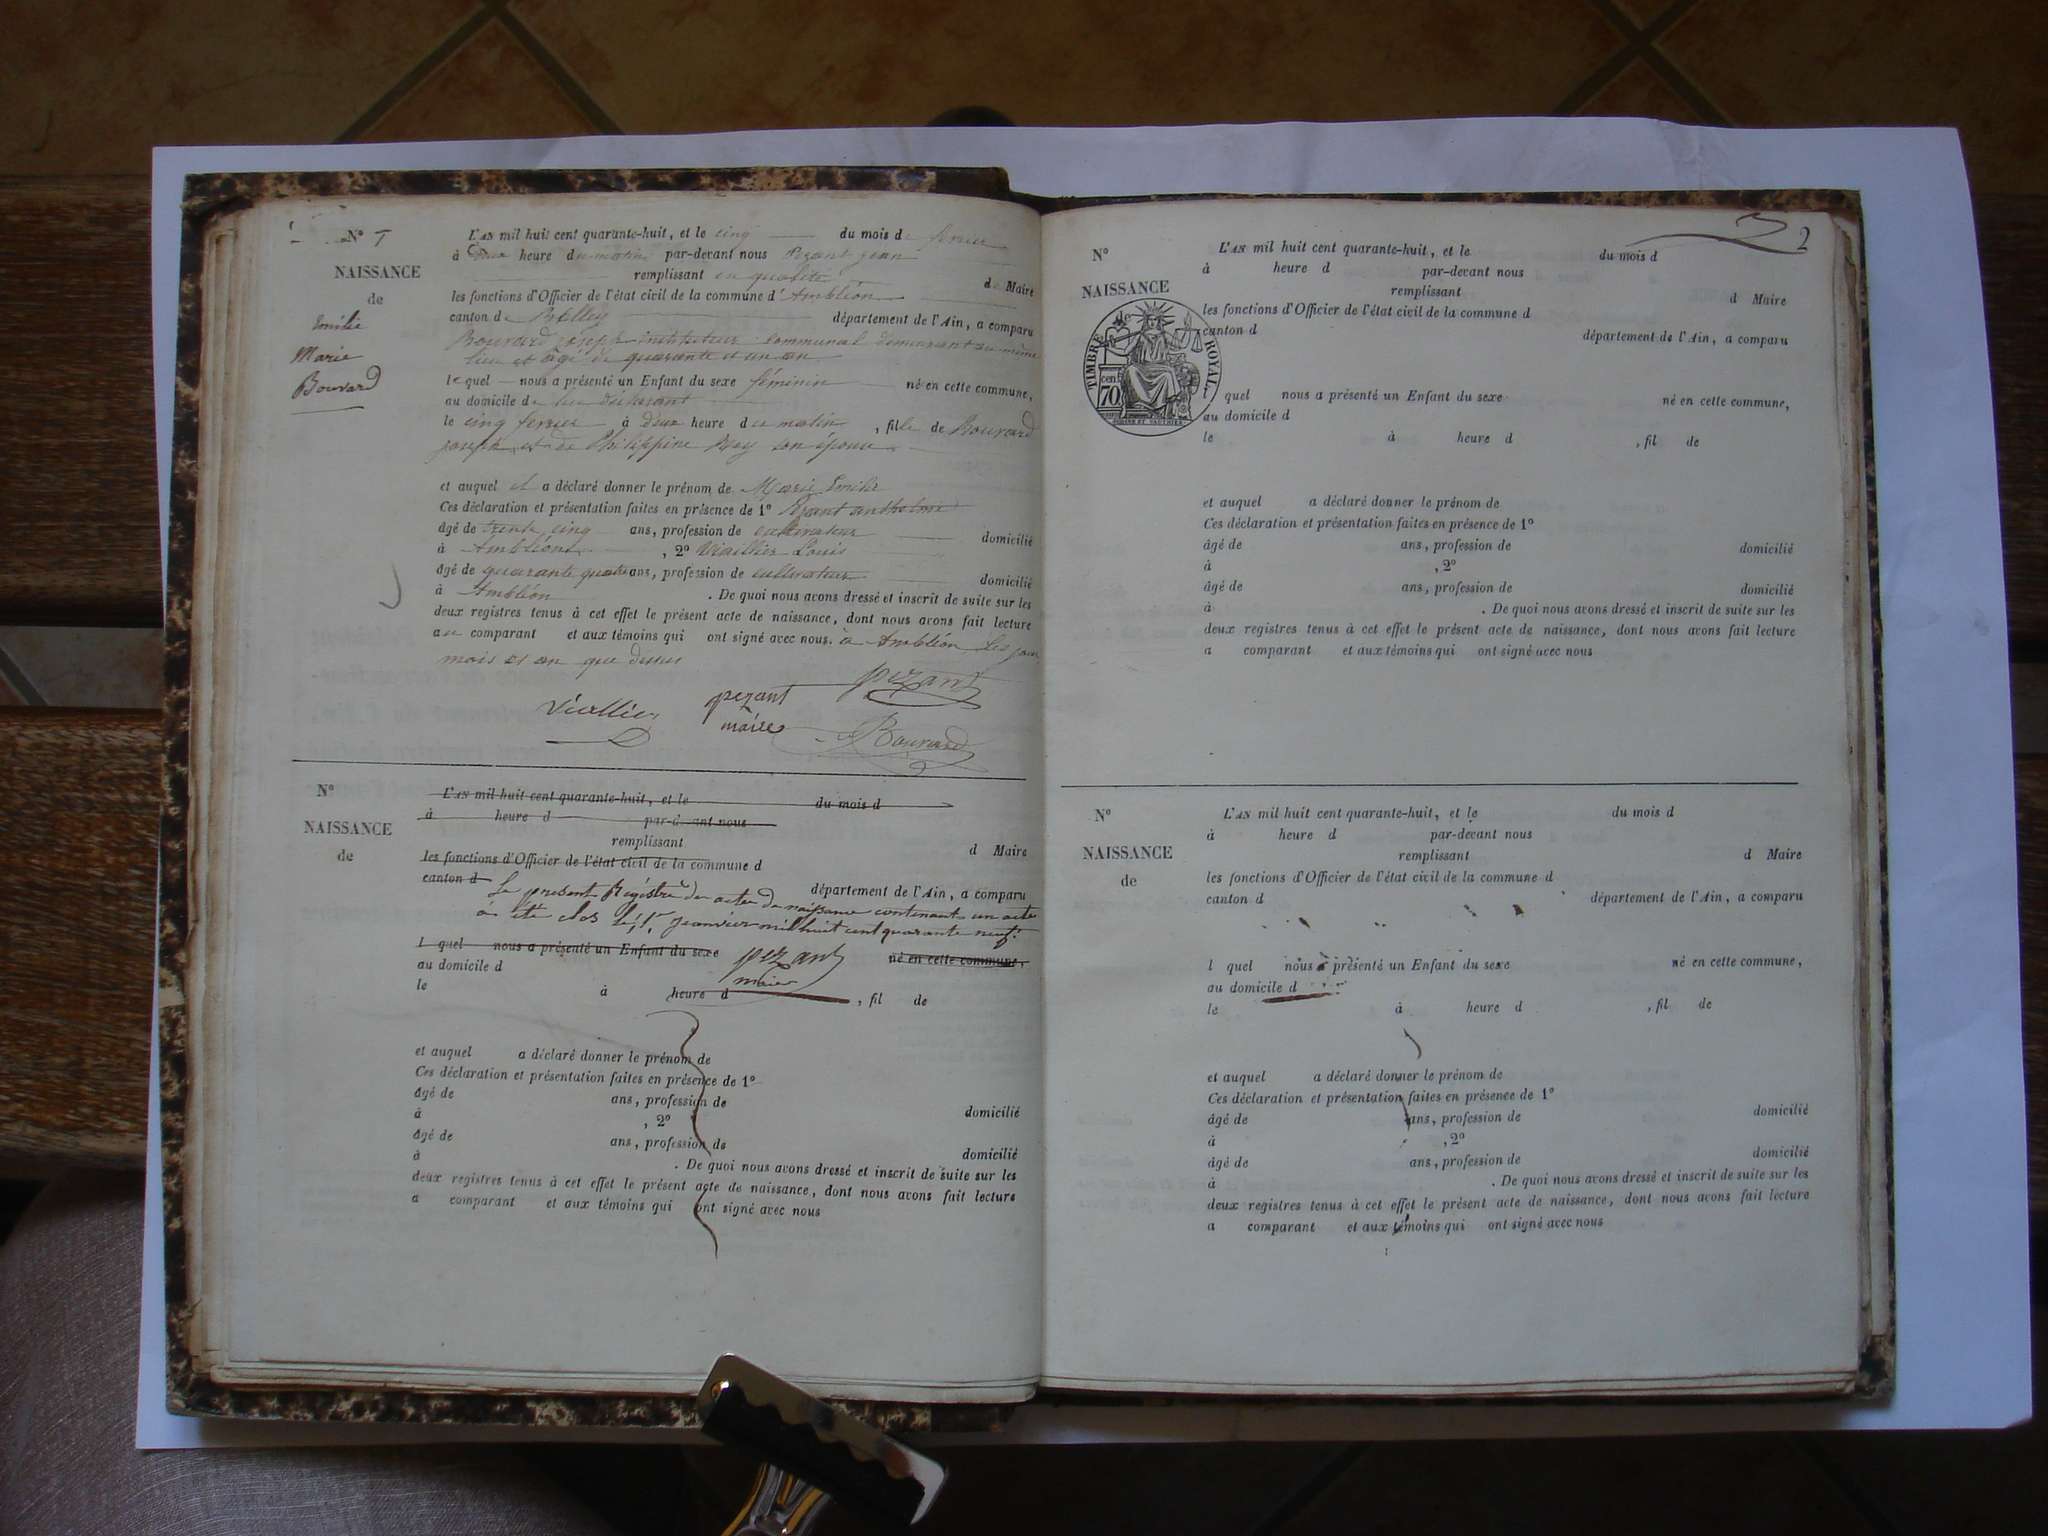 N° 1
NAISSANCE
de
Emilie
Marie
Bouvard
L'AN mil huit cent quarante-huit, et le cinq du mois de fevrier
à Deux heure du matin par-devant nous Pezant jean
remplissant en qualité de Maire
les fonctions d'Officier de l'état civil de la commune d'Ambléon
canton de Belley département de l'Ain, a comparu
Bouvard joseph instituteur communal demeurant au même
lieu et âgé de quarante et un an
le quel nous a présenté un Enfant du sexe féminin né en cette commune,
au domicile du
le cinq fevrier à Deux heure du matin, fille de Bouvard
joseph et de Philippine Rey son épouse
et auquel il a déclaré donner le prénom de Marie Emilie
Ces déclaration et présentation faites en présence de 1° Pezant anthelme
âgé de trente cinq ans, profession de cultivateur domicilié
à Ambléon, 2° Viallier Louis
âgé de quarante quatre ans, profession de cultivateur domicilié
à Ambléon. De quoi nous avons dressé et inscrit de suite sur les
deux registres tenus à cet effet le présent acte de naissance, dont nous avons fait lecture
au comparant et aux témoins qui ont signé avec nous. à Ambléon les jour
mois et an que dessus
pezant
Viallier pezant
maire Bouvard
N°
NAISSANCE
de
L'AN mil huit cent quarante-huit, et le du mois d
à heure d par-devant nous
remplissant d Maire
les fonctions d'Officier de l'état civil de la commune d
canton d département de l'Ain, a comparu
Le présent Registre des actes de naissance contenant un acte
à été clos le 1er Jeanvier mil huit cent quarante neuf.
l quel nous a présenté un Enfant du sexe né en cette commune,
pezant
maire
au domicile d
le à heure d , fil de
et auquel a déclaré donner le prénom de
Ces déclaration et présentation faites en présence de 1°
âgé de ans, profession de domicilié
à , 2°
âgé de ans, profession de domicilié
à . De quoi nous avons dressé et inscrit de suite sur les
deux registres tenus à cet effet le présent acte de naissance, dont nous avons fait lecture
a comparant et aux témoins qui ont signé avec nous
2
N°
NAISSANCE
de
TIMBRE ROYAL
70 cen.
L'AN mil huit cent quarante-huit, et le du mois d
à heure d par-devant nous
remplissant d Maire
les fonctions d'Officier de l'état civil de la commune d
canton d département de l'Ain, a comparu
l quel nous a présenté un Enfant du sexe né en cette commune,
au domicile d
le à heure d , fil de
et auquel a déclaré donner le prénom de
Ces déclaration et présentation faites en présence de 1°
âgé de ans, profession de domicilié
à , 2°
âgé de ans, profession de domicilié
à . De quoi nous avons dressé et inscrit de suite sur les
deux registres tenus à cet effet le présent acte de naissance, dont nous avons fait lecture
a comparant et aux témoins qui ont signé avec nous
N°
NAISSANCE
de
L'AN mil huit cent quarante-huit, et le du mois d
à heure d par-devant nous
remplissant d Maire
les fonctions d'Officier de l'état civil de la commune d
canton d département de l'Ain, a comparu
l quel nous a présenté un Enfant du sexe né en cette commune,
au domicile d
le à heure d , fil de
et auquel a déclaré donner le prénom de
Ces déclaration et présentation faites en présence de 1°
âgé de ans, profession de domicilié
à , 2°
âgé de ans, profession de domicilié
à . De quoi nous avons dressé et inscrit de suite sur les
deux registres tenus à cet effet le présent acte de naissance, dont nous avons fait lecture
a comparant et aux témoins qui ont signé avec nous